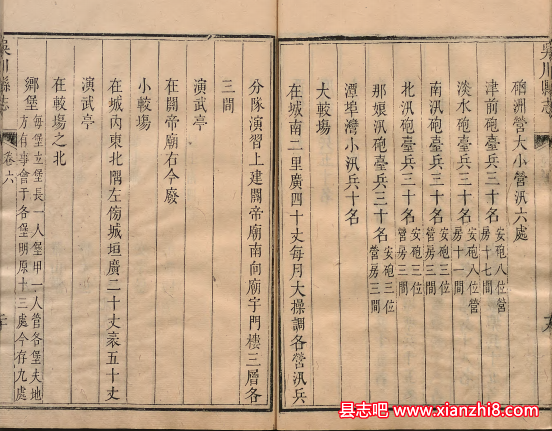 吳川縣志
硇洲營大小營汛六處
津前砲臺兵三十名安砲八位營房十七間
淡水砲臺兵三十名安砲八位營房十一間
南汛砲臺兵三十名安砲三位營房三間
北汛砲臺兵三十名安砲三位營房三間
那娘汛砲臺兵三十名安砲三位營房三間
潭埠灣小汛兵十名
大較塲
在城南二里廣四十丈每月大操調各營汛兵
分隊演習上建關帝廟南向廟宇門樓三層各
三間
演武亭
在關帝廟右今廢
小較塲
在城內東北隅左傍城垣廣二十丈袤五十丈
演武亭
在較塲之北
鄉堡每堡立堡長一人堡甲一人管各堡夫地方有事會于各堡明原十三處今存九處
吳川縣志
卷六
县志吧 www.xianzhi8.com